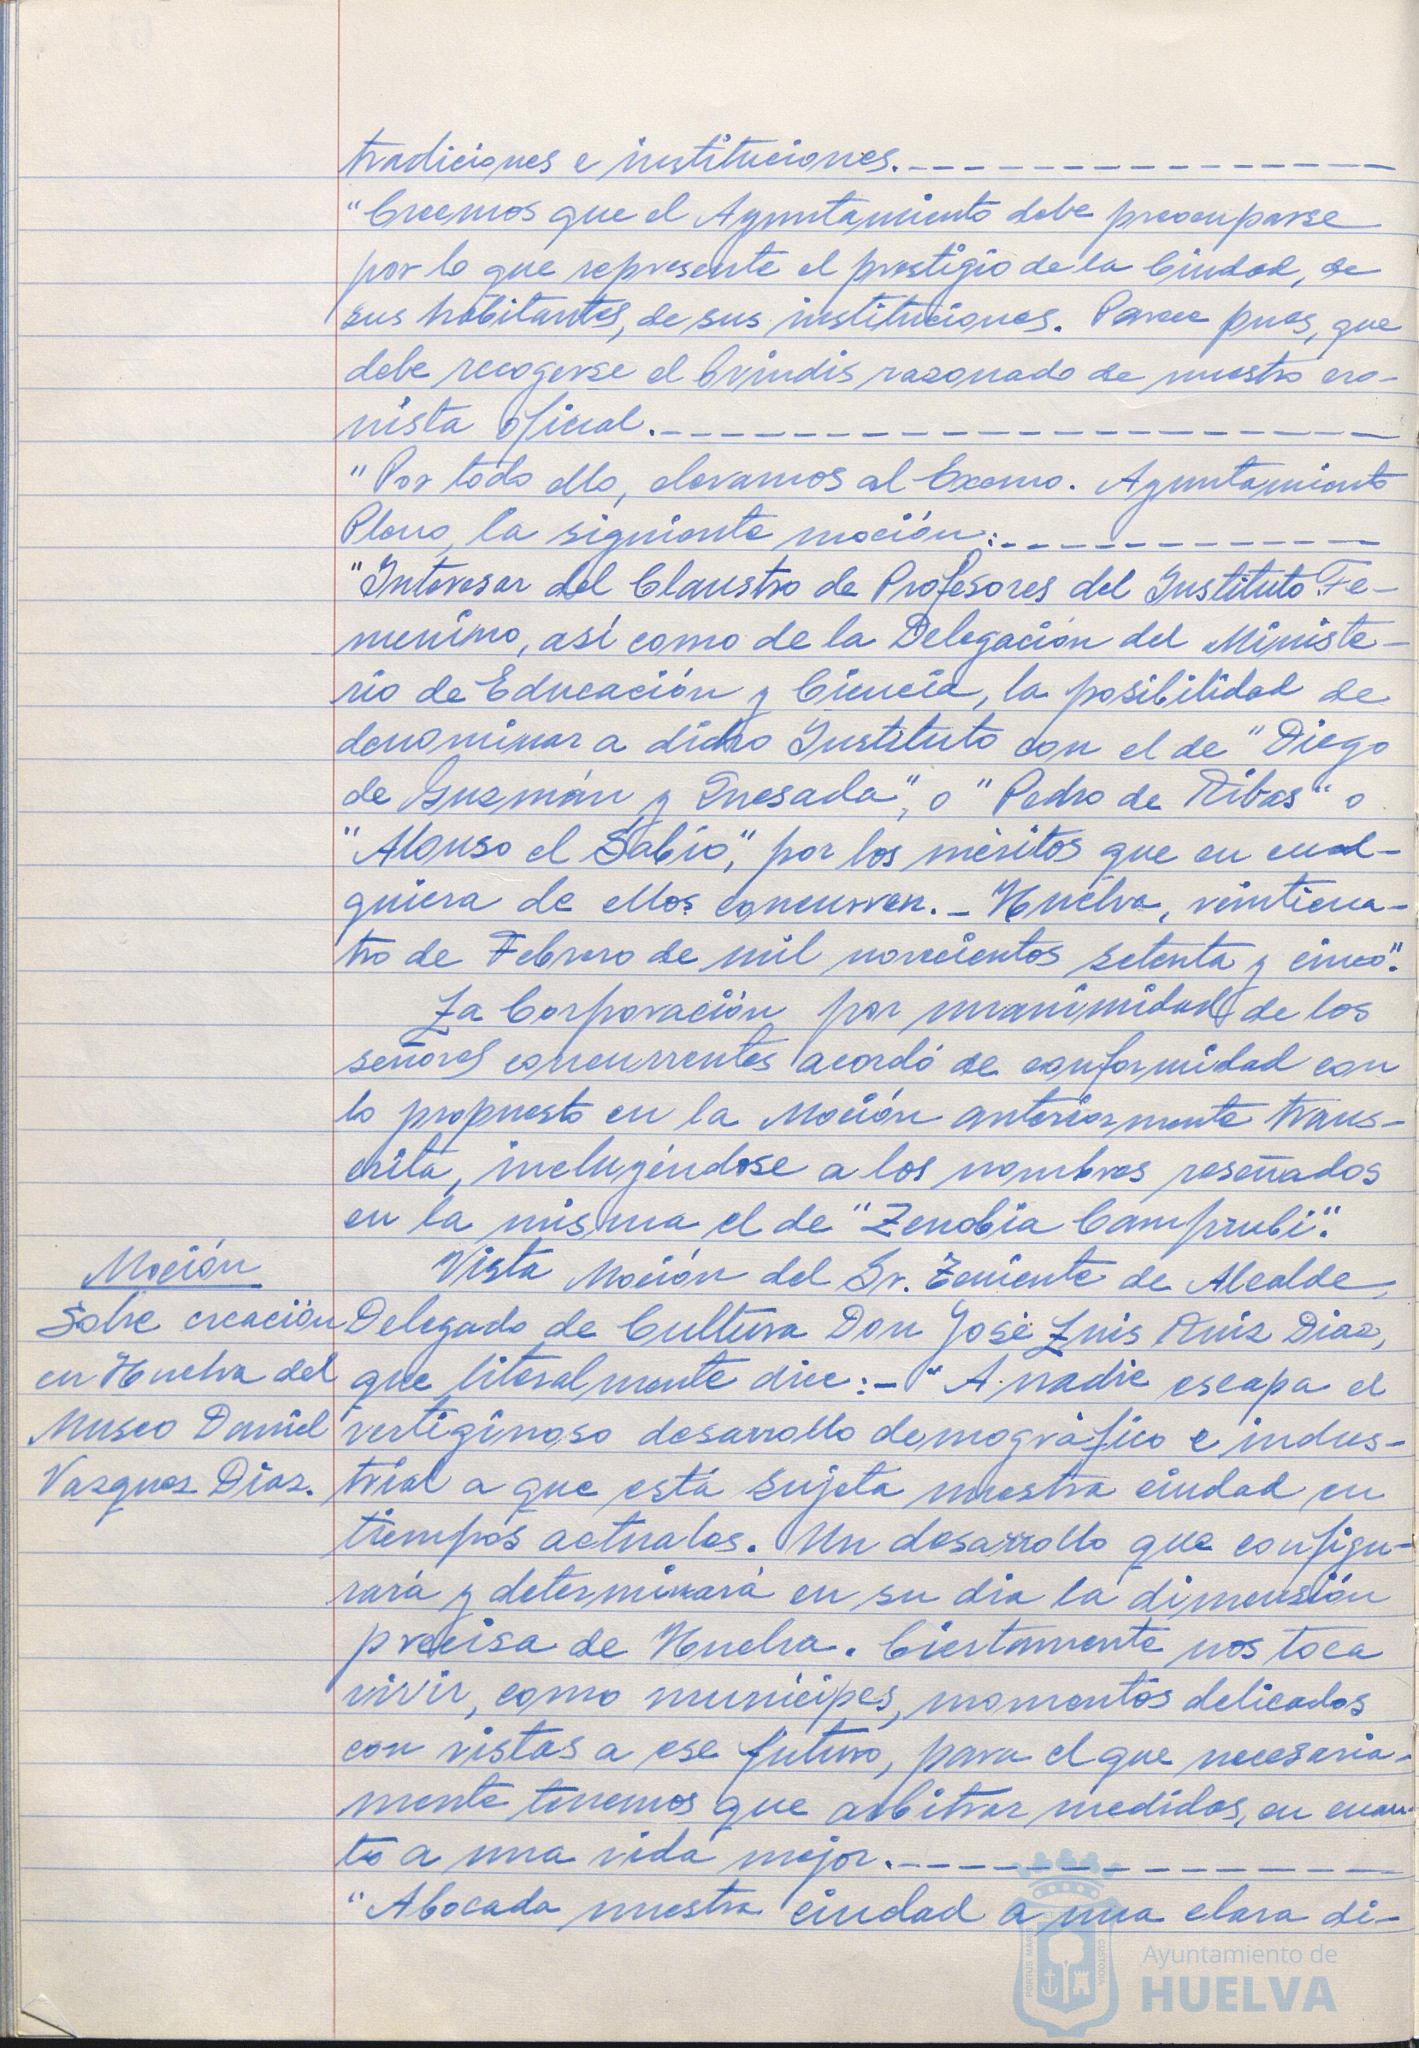 tradiciones e instituciones.
"Creemos que el Ayuntamiento debe preocuparse
por lo que represente el prestigio de la Ciudad, de
sus habitantes, de sus instituciones. Parece pues, que
debe recogerse el brindis razonado de nuestro cro-
nista oficial.
"Por todo ello, elevamos al Excmo. Ayuntamiento
Pleno, la siguiente moción:
"Interesar del Claustro de Profesores del Instituto Fe-
menino, así como de la Delegación del Ministe-
rio de Educación y Ciencia, la posibilidad de
denominar a dicho Instituto con el de "Diego
de Guzmán y Quesada", o "Pedro de Ribas" o
"Alonso el Sabio", por los méritos que en cual-
quiera de ellos concurren.- Huelva, veinticua-
tro de Febrero de mil novecientos setenta y cinco".
La Corporación por unanimidad de los
señores concurrentes acordó de conformidad con
lo propuesto en la Moción anteriormente trans-
crita, incluyéndose a los nombres reseñados
en la misma el de "Zenobia Camprubi".
Moción
Sobre creación
en Huelva del
Museo Daniel
Vazquez Diaz.
Vista Moción del Sr. Teniente de Alcalde,
Delegado de Cultura Don José Luis Ruiz Diaz,
que literalmente dice:- "A nadie escapa el
vertiginoso desarrollo demográfico e indus-
trial a que está sujeta nuestra ciudad en
tiempos actuales. Un desarrollo que configu-
rará y determinará en su dia la dimensión
precisa de Huelva. Ciertamente nos toca
vivir, como munícipes, momentos delicados
con vistas a ese futuro, para el que necesaria-
mente tenemos que arbitrar medidas, en cuan-
to a una vida mejor.
"Abocada nuestra ciudad a una clara di-
PORTUS MARIS
CUSTODIA
Ayuntamiento de
HUELVA